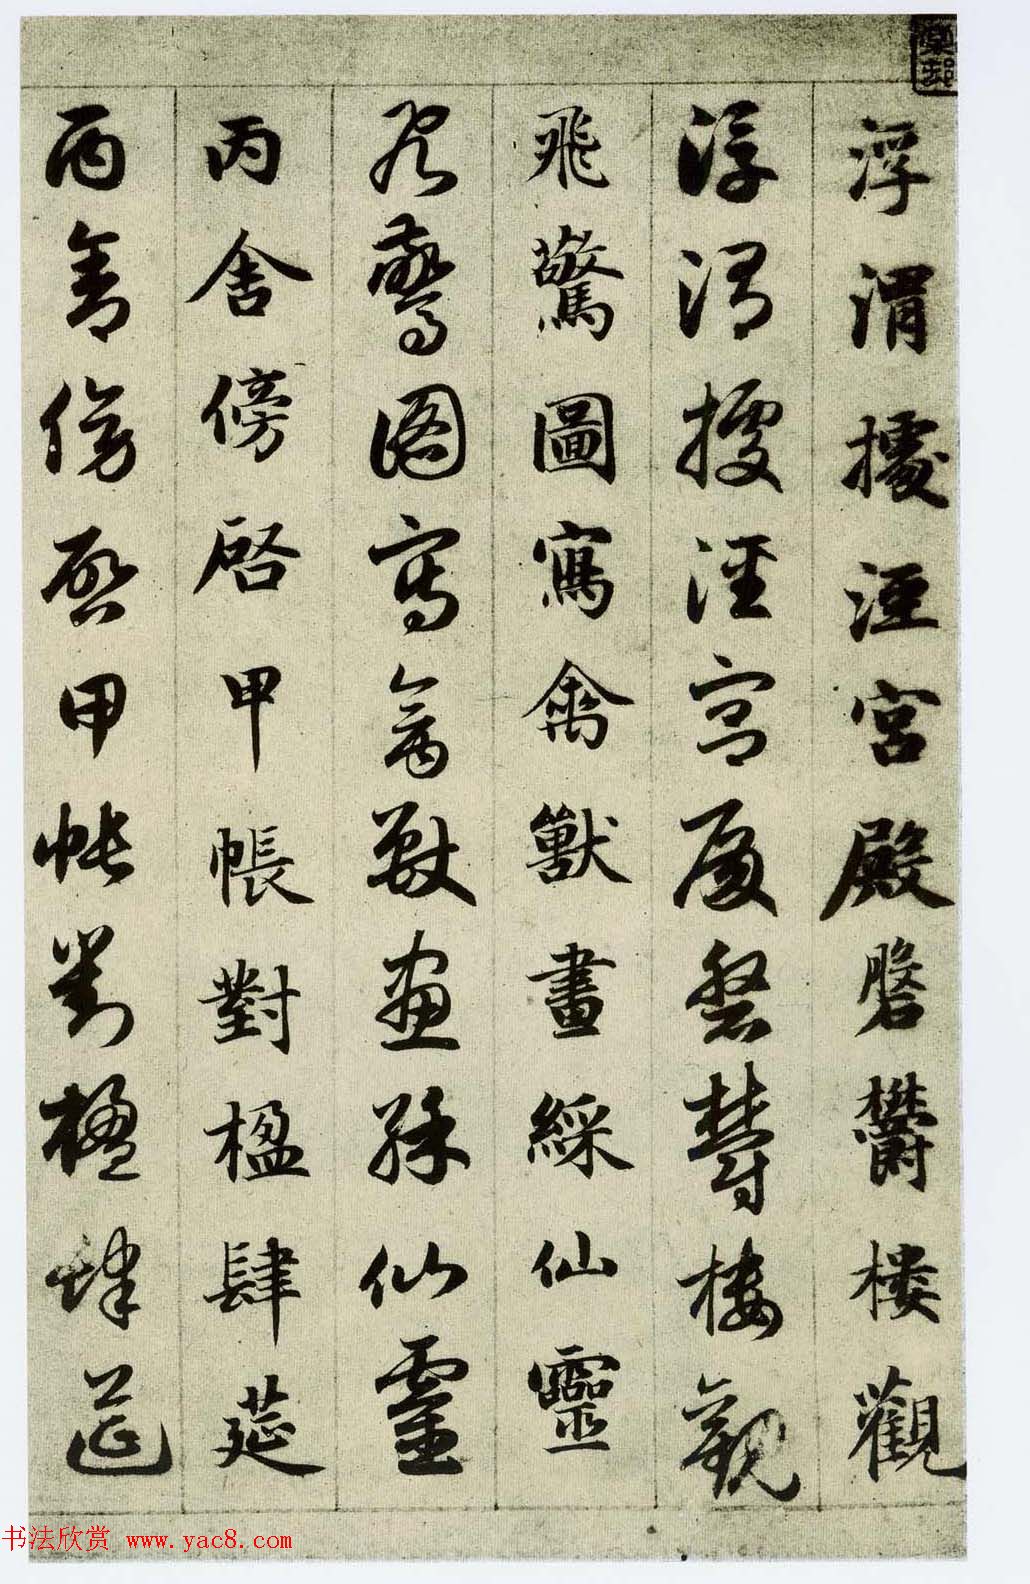 浮渭據涇宮殿磐欝樓觀
浮渭據涇宮殿磐欝樓觀
飛驚圖寫禽獸畫綵仙靈
飛驚圖寫禽獸畫綵仙靈
丙舍傍啓甲帳對楹肆莚
丙舍傍啓甲帳對楹肆莚
书法欣赏 www.yac8.com